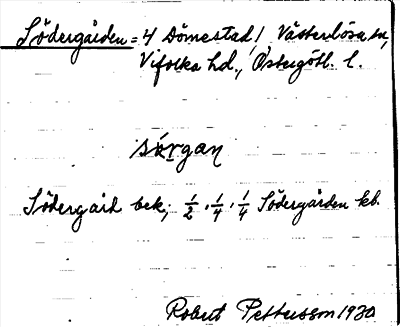 Södergården = 4 Dömestad / Västerlösa sn,
Vifolka hd., Östergötl. l.
sö̀rgan
Södergård bek., 1/2, 1/4, 1/4 Södergården kb.
Robert Pettersson 1930